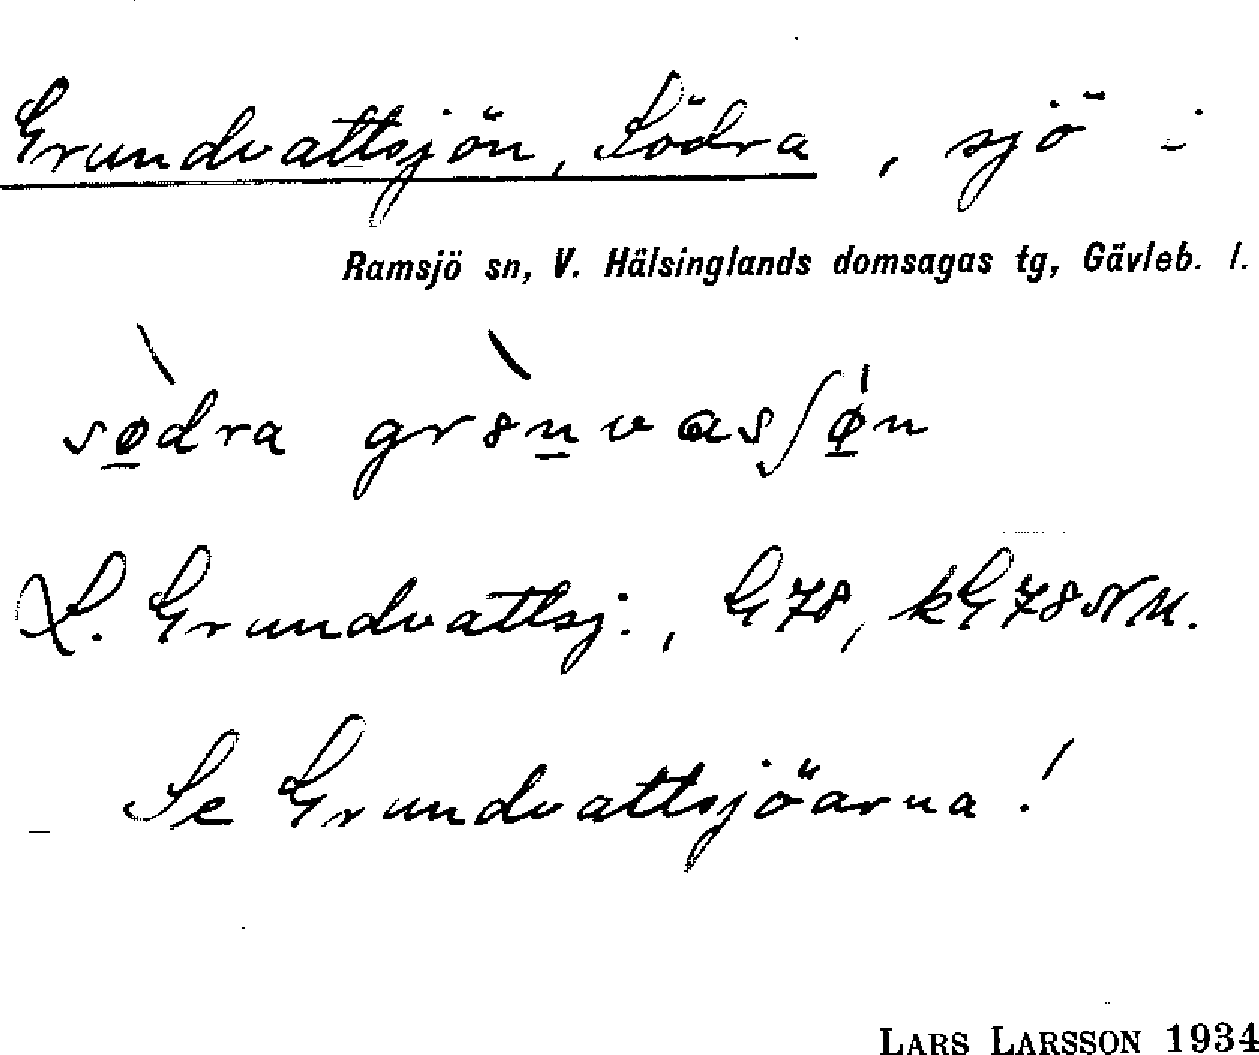 Grundvattsjön, Södra, sjö i
Ramsjö sn, V. Hälsinglands domsagas tg, Gävleb. l.
sø̲̀dra gr8̀n̲vasʃǿ̲n
L. Grundvattsj., G78, kG78NM.
Se Grundvattsjöarna!
LARS LARSSON 1934